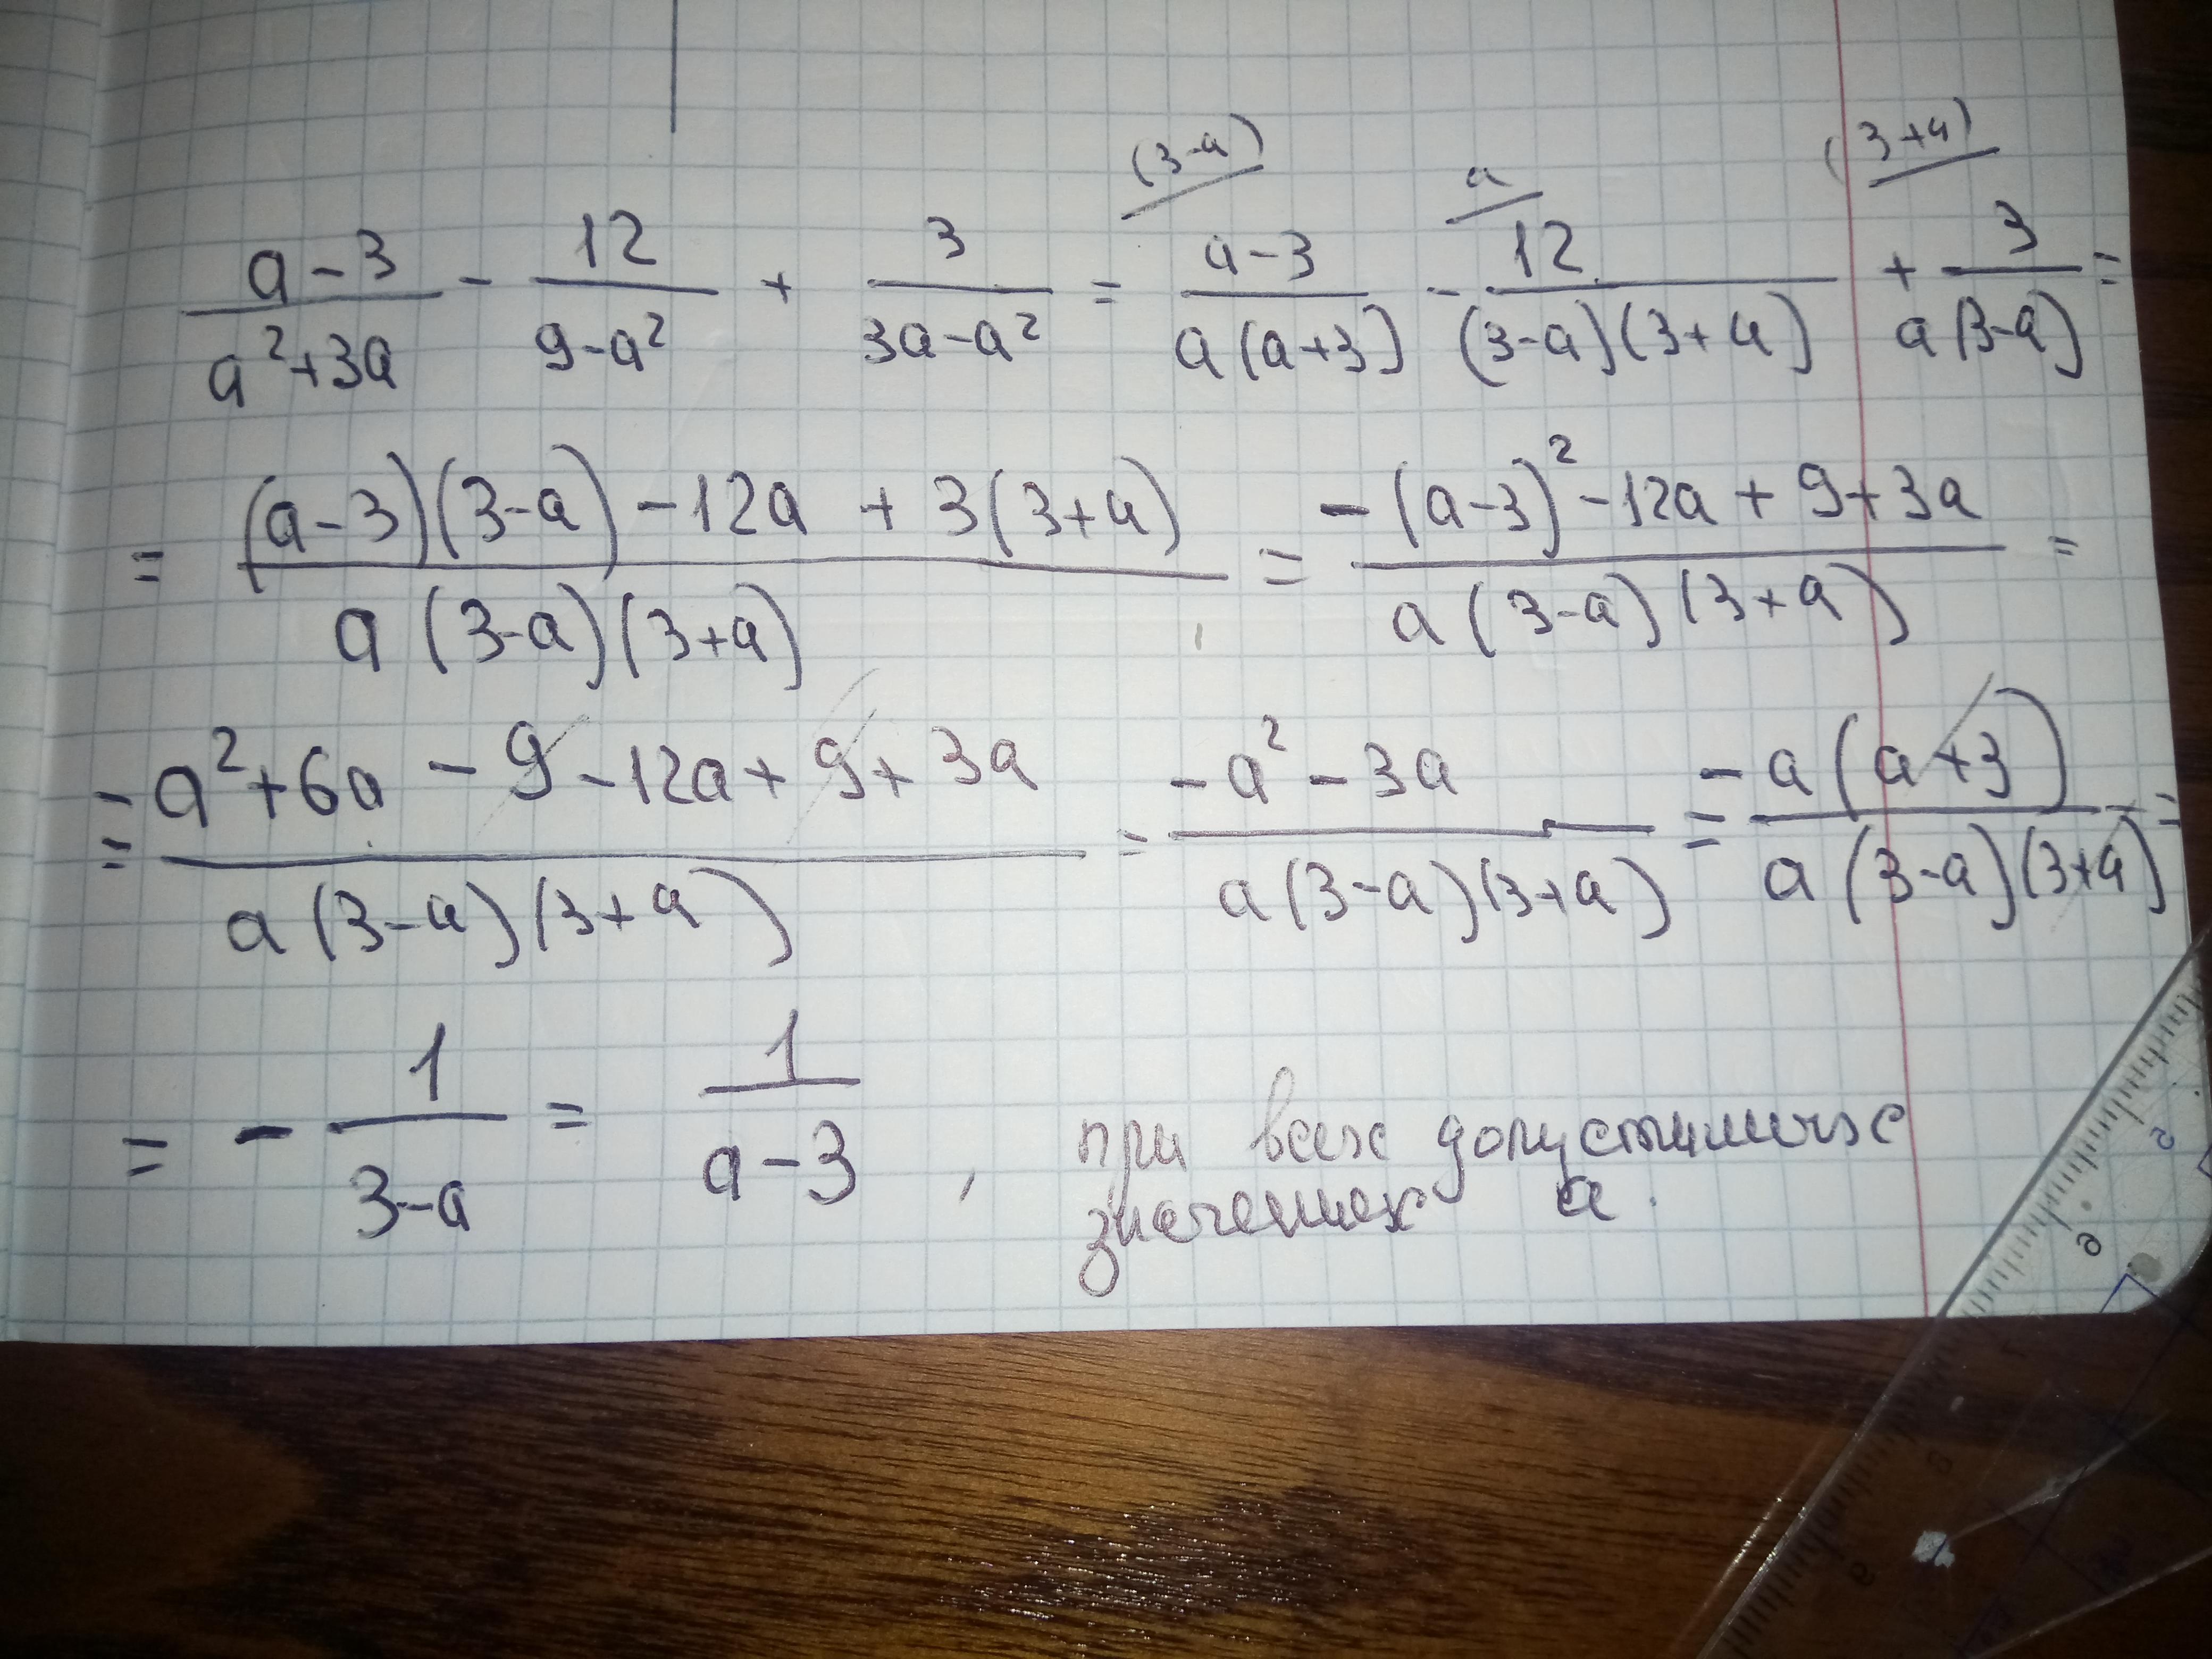 (3-a) a (3+a)
(a-3)/(a²+3a) - 12/(9-a²) + 3/(3a-a²) = (a-3)/(a(a+3)) - 12/((3-a)(3+a)) + 3/(a(3-a)) =
= ((a-3)(3-a) - 12a + 3(3+a))/(a(3-a)(3+a)) = (-(a-3)² - 12a + 9 + 3a)/(a(3-a)(3+a)) =
= (-a² + 6a - 9 - 12a + 9 + 3a)/(a(3-a)(3+a)) = (-a² - 3a)/(a(3-a)(3+a)) = (-a(a+3))/(a(3-a)(3+a)) =
= - 1/(3-a) = 1/(a-3), при всех допустимых
значениях a.